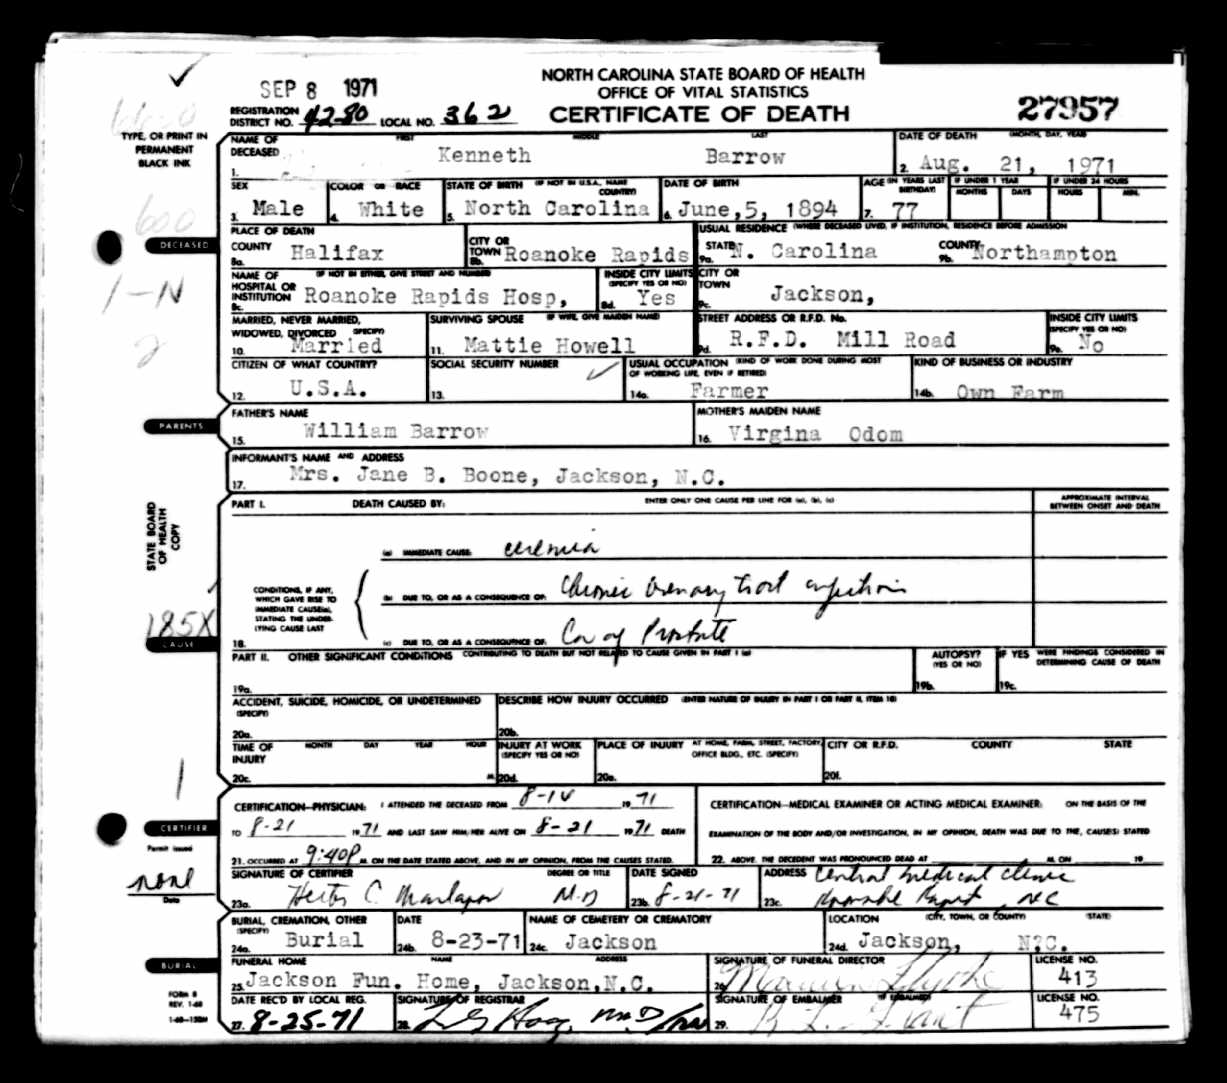 SEP 8 1971
NORTH CAROLINA STATE BOARD OF HEALTH
OFFICE OF VITAL STATISTICS
CERTIFICATE OF DEATH
27957
REGISTRATION DISTRICT NO. 42-80 LOCAL NO. 362
TYPE, OR PRINT IN PERMANENT BLACK INK
600
NAME OF DECEASED FIRST MIDDLE LAST
1. Kenneth Barrow
DATE OF DEATH (MONTH, DAY, YEAR)
2. Aug. 21, 1971
SEX
3. Male
COLOR OR RACE
4. White
STATE OF BIRTH (IF NOT IN U.S.A., NAME COUNTRY)
5. North Carolina
DATE OF BIRTH
6. June,5, 1894
AGE (IN YEARS LAST BIRTHDAY)
7. 77
IF UNDER 1 YEAR MONTHS DAYS
IF UNDER 24 HOURS HOURS MIN.
DECEASED
PLACE OF DEATH
COUNTY
8a. Halifax
CITY OR TOWN
8b. Roanoke Rapids
USUAL RESIDENCE (WHERE DECEASED LIVED, IF INSTITUTION, RESIDENCE BEFORE ADMISSION
STATE
9a. N. Carolina
COUNTY
9b. Northampton
1-N
NAME OF HOSPITAL OR INSTITUTION (IF NOT IN EITHER, GIVE STREET AND NUMBER)
8c. Roanoke Rapids Hosp,
INSIDE CITY LIMITS (SPECIFY YES OR NO)
8d. Yes
CITY OR TOWN
9c. Jackson,
2
MARRIED, NEVER MARRIED, WIDOWED, DIVORCED (SPECIFY)
10. Married
SURVIVING SPOUSE (IF WIFE, GIVE MAIDEN NAME)
11. Mattie Howell
STREET ADDRESS OR R.F.D. No.
9d. R.F.D. Mill Road
INSIDE CITY LIMITS (SPECIFY YES OR NO)
9e. No
CITIZEN OF WHAT COUNTRY?
12. U.S.A.
SOCIAL SECURITY NUMBER
13.
USUAL OCCUPATION (KIND OF WORK DONE DURING MOST OF WORKING LIFE, EVEN IF RETIRED)
14a. Farmer
KIND OF BUSINESS OR INDUSTRY
14b. Own Farm
PARENTS
FATHER'S NAME
15. William Barrow
MOTHER'S MAIDEN NAME
16. Virgina Odom
INFORMANT'S NAME AND ADDRESS
17. Mrs. Jane B. Boone, Jackson, N.C.
STATE BOARD OF HEALTH COPY
PART I. DEATH CAUSED BY: ENTER ONLY ONE CAUSE PER LINE FOR (a), (b), (c)
APPROXIMATE INTERVAL BETWEEN ONSET AND DEATH
(a) IMMEDIATE CAUSE: uremia
CONDITIONS, IF ANY, WHICH GAVE RISE TO IMMEDIATE CAUSE(a), STATING THE UNDERLYING CAUSE LAST
(b) DUE TO, OR AS A CONSEQUENCE OF: Chronic urinary tract infection
185X
CAUSE
18. (c) DUE TO, OR AS A CONSEQUENCE OF: Ca of Prostate
PART II. OTHER SIGNIFICANT CONDITIONS CONTRIBUTING TO DEATH BUT NOT RELATED TO CAUSE GIVEN IN PART I (a)
19a.
AUTOPSY? (YES OR NO)
19b.
IF YES WERE FINDINGS CONSIDERED IN DETERMINING CAUSE OF DEATH
19c.
ACCIDENT, SUICIDE, HOMICIDE, OR UNDETERMINED (SPECIFY)
20a.
DESCRIBE HOW INJURY OCCURRED (ENTER NATURE OF INJURY IN PART I OR PART II, ITEM 18)
20b.
TIME OF INJURY MONTH DAY YEAR HOUR
20c. M.
INJURY AT WORK (SPECIFY YES OR NO)
20d.
PLACE OF INJURY AT HOME, FARM, STREET, FACTORY, OFFICE BLDG., ETC. (SPECIFY)
20e.
CITY OR R.F.D. COUNTY STATE
20f.
1
CERTIFIER
Permit issued
none
Date
CERTIFICATION—PHYSICIAN: I ATTENDED THE DECEASED FROM 8-14 1971
TO 8-21 1971 AND LAST SAW HIM/HER ALIVE ON 8-21 1971 DEATH
21. OCCURRED AT 9:40P M. ON THE DATE STATED ABOVE, AND IN MY OPINION, FROM THE CAUSES STATED.
CERTIFICATION—MEDICAL EXAMINER OR ACTING MEDICAL EXAMINER: ON THE BASIS OF THE
EXAMINATION OF THE BODY AND/OR INVESTIGATION, IN MY OPINION, DEATH WAS DUE TO THE, CAUSE(S) STATED
22. ABOVE. THE DECEDENT WAS PRONOUNCED DEAD AT M. ON 19
SIGNATURE OF CERTIFIER DEGREE OR TITLE
23a. M.D
DATE SIGNED
23b. 8-21-71
ADDRESS Central medical clinic
23c. Roanoke Rapids, NC
BURIAL, CREMATION, OTHER (SPECIFY)
24a. Burial
DATE
24b. 8-23-71
NAME OF CEMETERY OR CREMATORY
24c. Jackson
LOCATION (CITY, TOWN, OR COUNTY) (STATE)
24d. Jackson, N.C.
BURIAL
FUNERAL HOME NAME ADDRESS
25. Jackson Fun. Home, Jackson,N.C.
SIGNATURE OF FUNERAL DIRECTOR
26.
LICENSE NO.
413
FORM 8
REV. 1-68
1-68—150M
DATE REC'D BY LOCAL REG.
27. 8-25-71
SIGNATURE OF REGISTRAR
28.
SIGNATURE OF EMBALMER (IF EMBALMED)
29.
LICENSE NO.
475